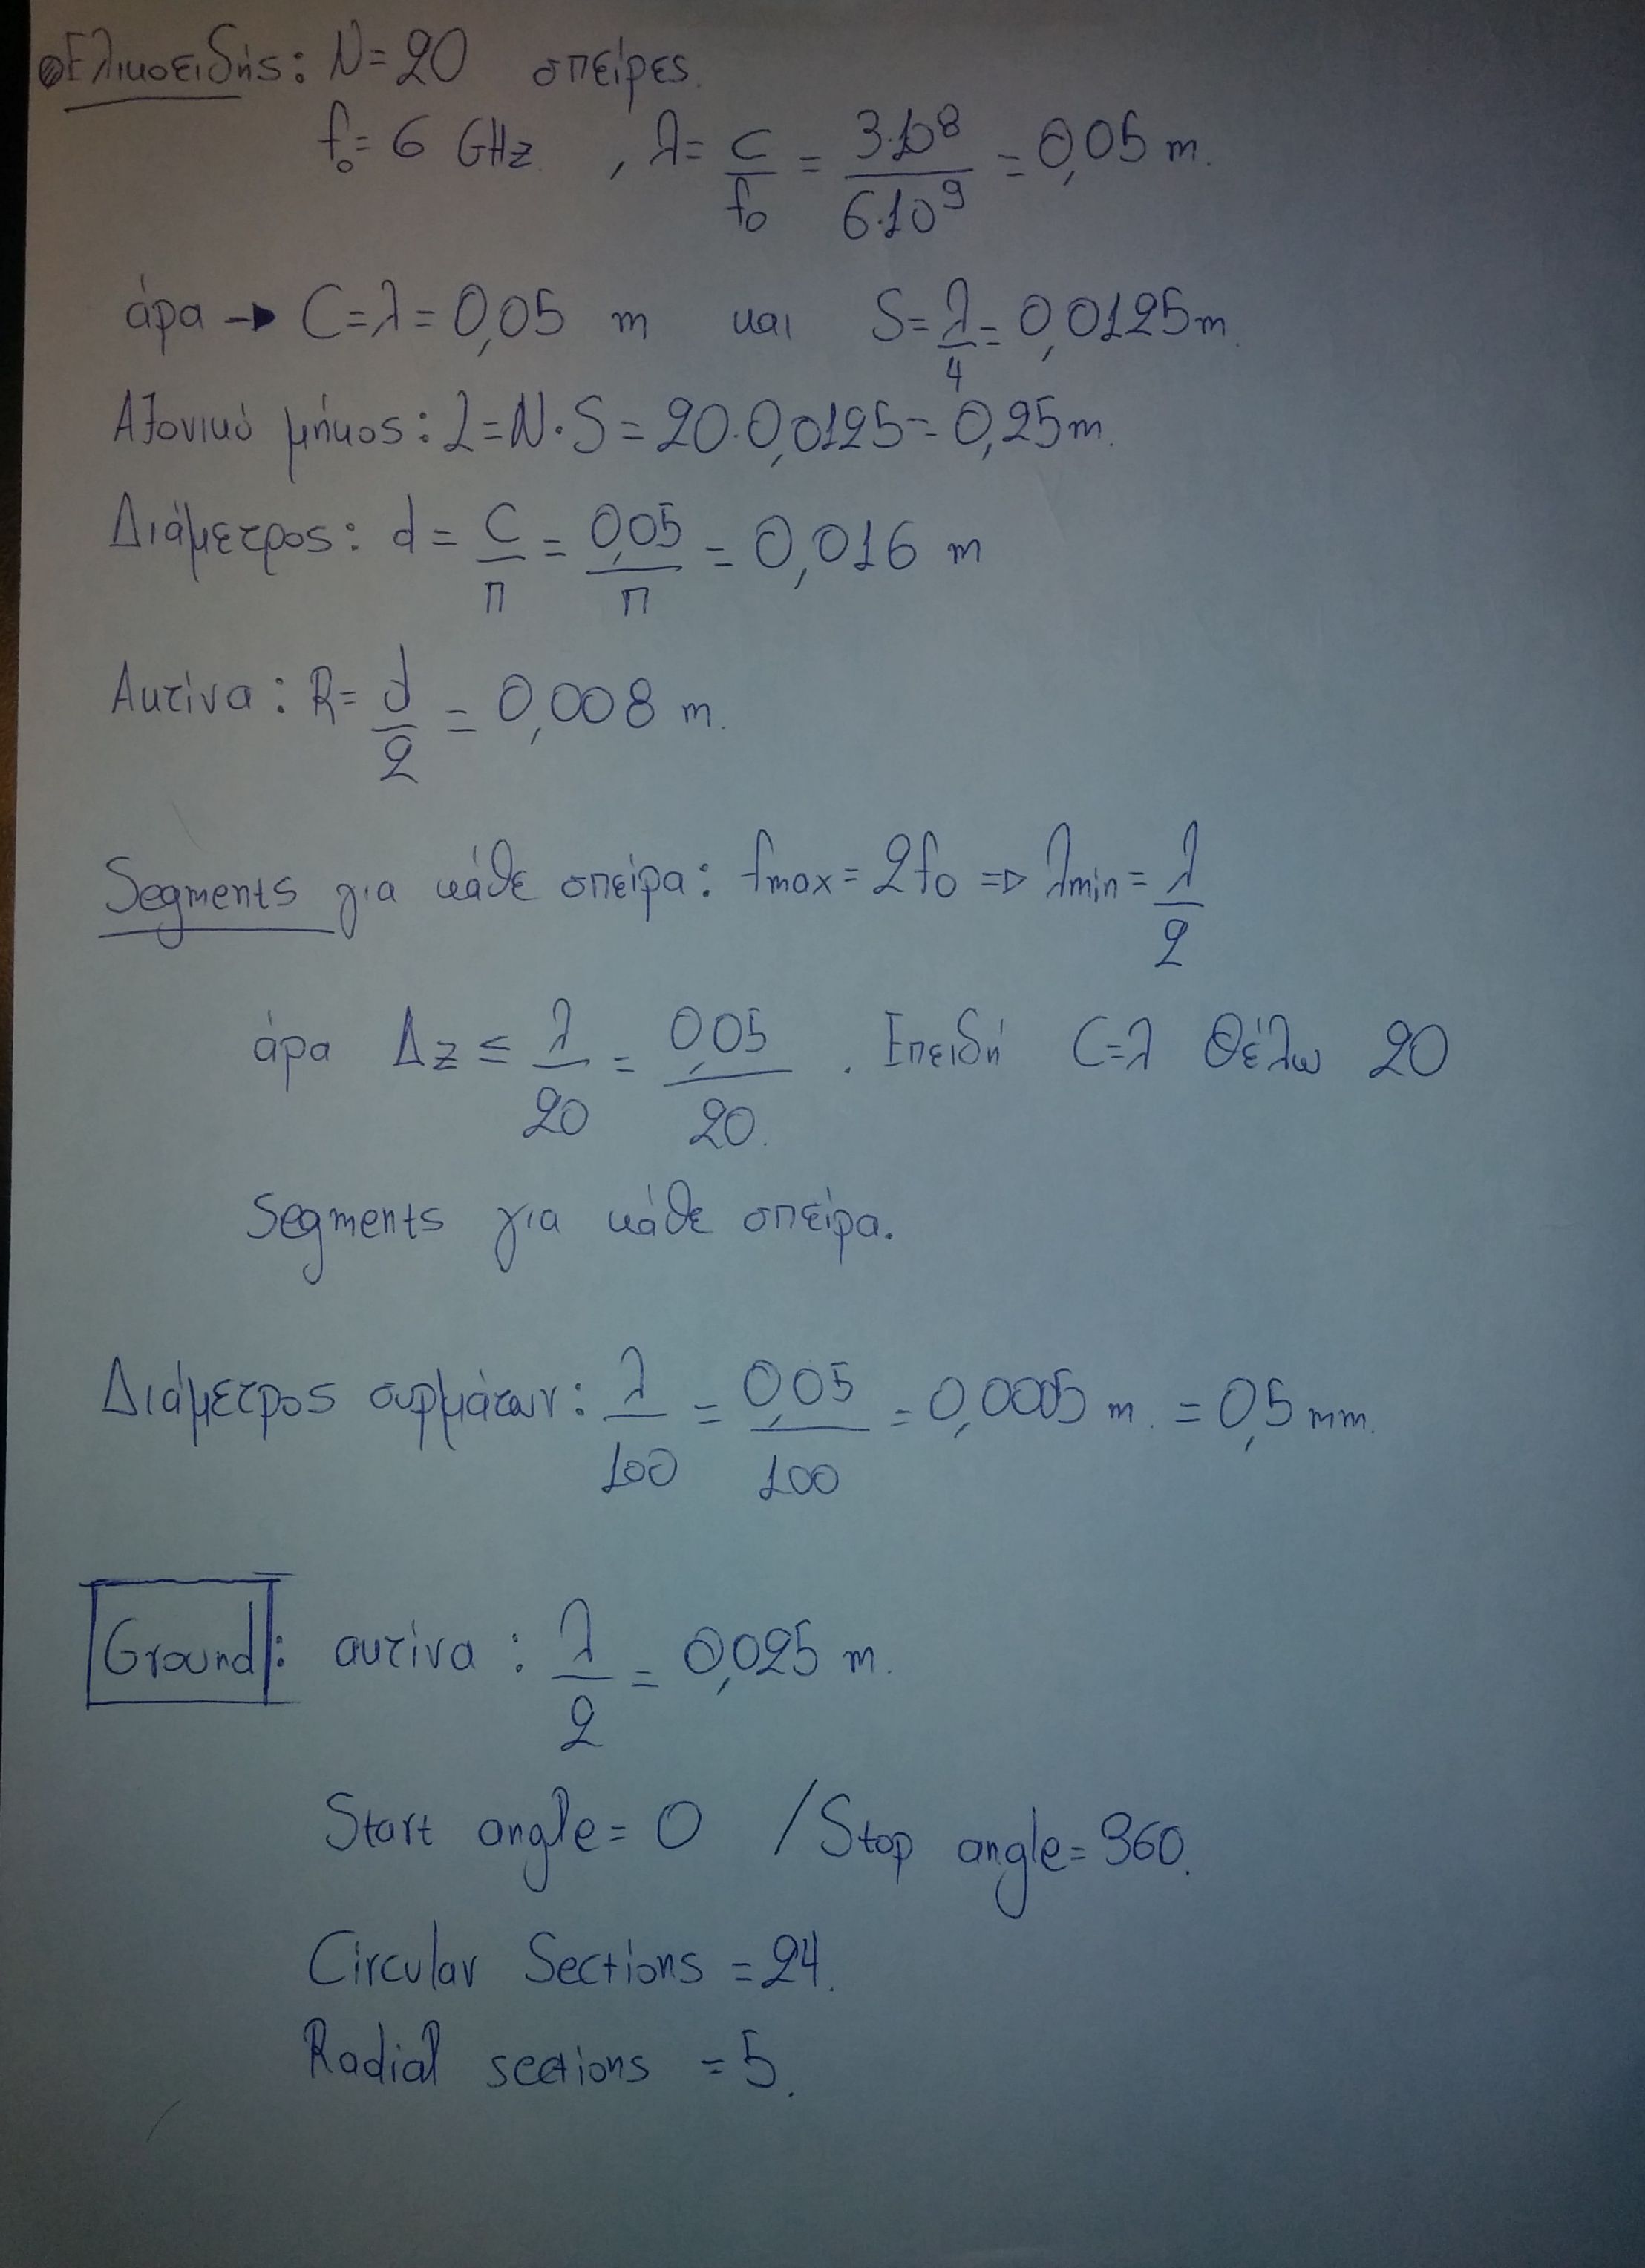 Ελικοειδής: N=20 σπείρες.
f₀=6 GHz , λ= c/f₀ = 3·10⁸/6·10⁹ = 0,05 m.
άρα → C=λ=0,05 m και S=λ/4=0,0125m.
Αξονικό μήκος: L=N·S=20·0,0125=0,25m.
Διάμετρος: d= C/π = 0,05/π = 0,016 m
Ακτίνα: R= d/2 = 0,008 m.
Segments για κάθε σπείρα: fmax=2f₀ ⇒ λmin= λ/2
άρα Δz ≤ λ/20 = 0,05/20 . Επειδή C=λ θέλω 20
Segments για κάθε σπείρα.
Διάμετρος συρμάτων: λ/100 = 0,05/100 = 0,0005 m. = 0,5 mm.
Ground: ακτίνα: λ/2 = 0,025 m.
Start angle= 0 /Stop angle= 360.
Circular Sections =24.
Radial sections =5.